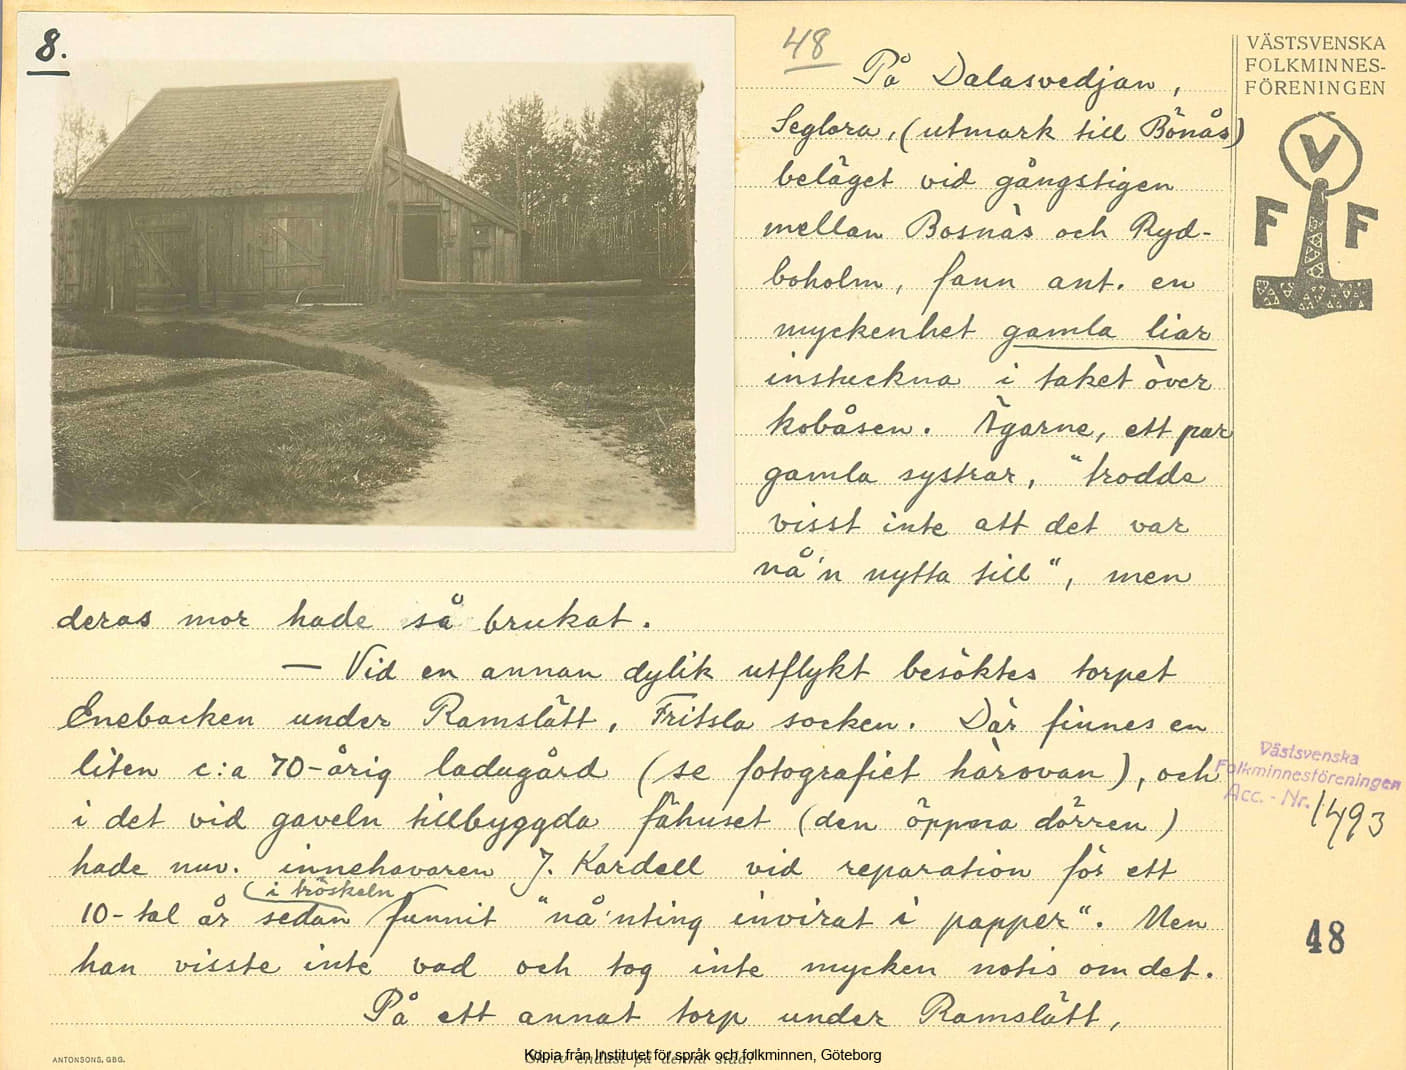 8.
48
På Dalasvedjan,
Seglora, (utmark till Bönås)
beläget vid gångstigen
mellan Bosnäs och Ryd-
boholm, fann ant. en
myckenhet gamla liar
instuckna i taket över
kobåsen. Ägarne, ett par
gamla systrar, "trodde
visst inte att det var
nå'n nytta till", men
deras mor hade så brukat.
— Vid en annan dylik utflykt besöktes torpet
Enebacken under Ramslätt, Fritsla socken. Där finnes en
liten c:a 70-årig ladugård (se fotografiet härovan), och
i det vid gaveln tillbyggda fähuset (den öppna dörren)
hade nuv. innehavaren J. Kardell vid reparation för ett
i tröskeln
10-tal år sedan funnit "nå'nting invirat i papper". Men
han visste inte vad och tog inte mycken notis om det.
På ett annat torp under Ramslätt,
VÄSTSVENSKA
FOLKMINNES-
FÖRENINGEN
V
F F
Västsvenska
Folkminnesföreningen
Acc. - Nr. 1493
48
ANTONSONS, GBG.
Skriv endast på denna sida!
Kopia från Institutet för språk och folkminnen, Göteborg